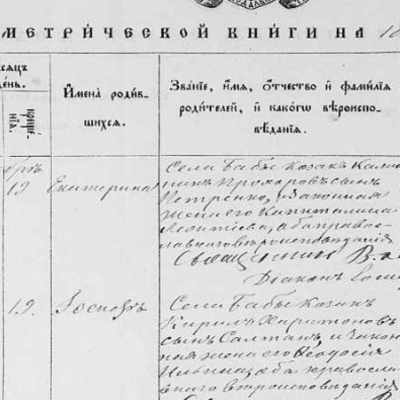 МЕТРИ́ЧЕСКОЙ КНИ́ГИ НА 18
сяцъ
день.
креще-
нія.
И́мена роди́в-
шихся.
Зва́нїе, и́мя, ѻ́тчество и҆ фами́лїя
роди́телей, и҆ како́гѡ вѣроиспо-
вѣ́данїя.
19
Екатерина
Села Бабы козакъ Калли-
никъ Прохоровъ сынъ
Петренко, и законная
жена его Капитолина
Леонтіева, оба правос-
лавнаго вѣроисповѣданія
Священник
Діакон
19.
Іосифъ
Села Бабы козак
Кирилъ Харитоновъ
сынъ Салтан, и закон-
ная жена его Ѳеодосія
оба правосла-
внаго вѣроисповѣданія